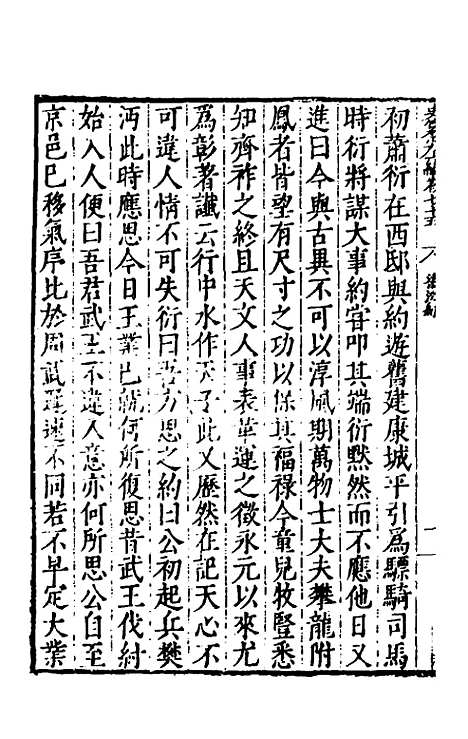 初蕭衍在西邸與約遊舊建康城平引爲驃騎司馬
時衍將謀大事約甞叩其端衍黙然而不應他日又
進曰今與古異不可以淳風期萬物士大夫攀龍附
鳳者皆望有尺寸之功以保其福禄今童兒牧豎悉
知齊祚之終且天文人事表革運之徵永元以來尤
爲彰著讖云行中水作天子此又歷然在記天心不
可違人情不可失衍曰吾方思之約曰公初起兵樊
沔此時應思今日王業已就何所復思昔武王伐紂
始入人便曰吾君武王不違人意亦何所思公自至
京邑已移氣序比於周武遲速不同若不早定大業